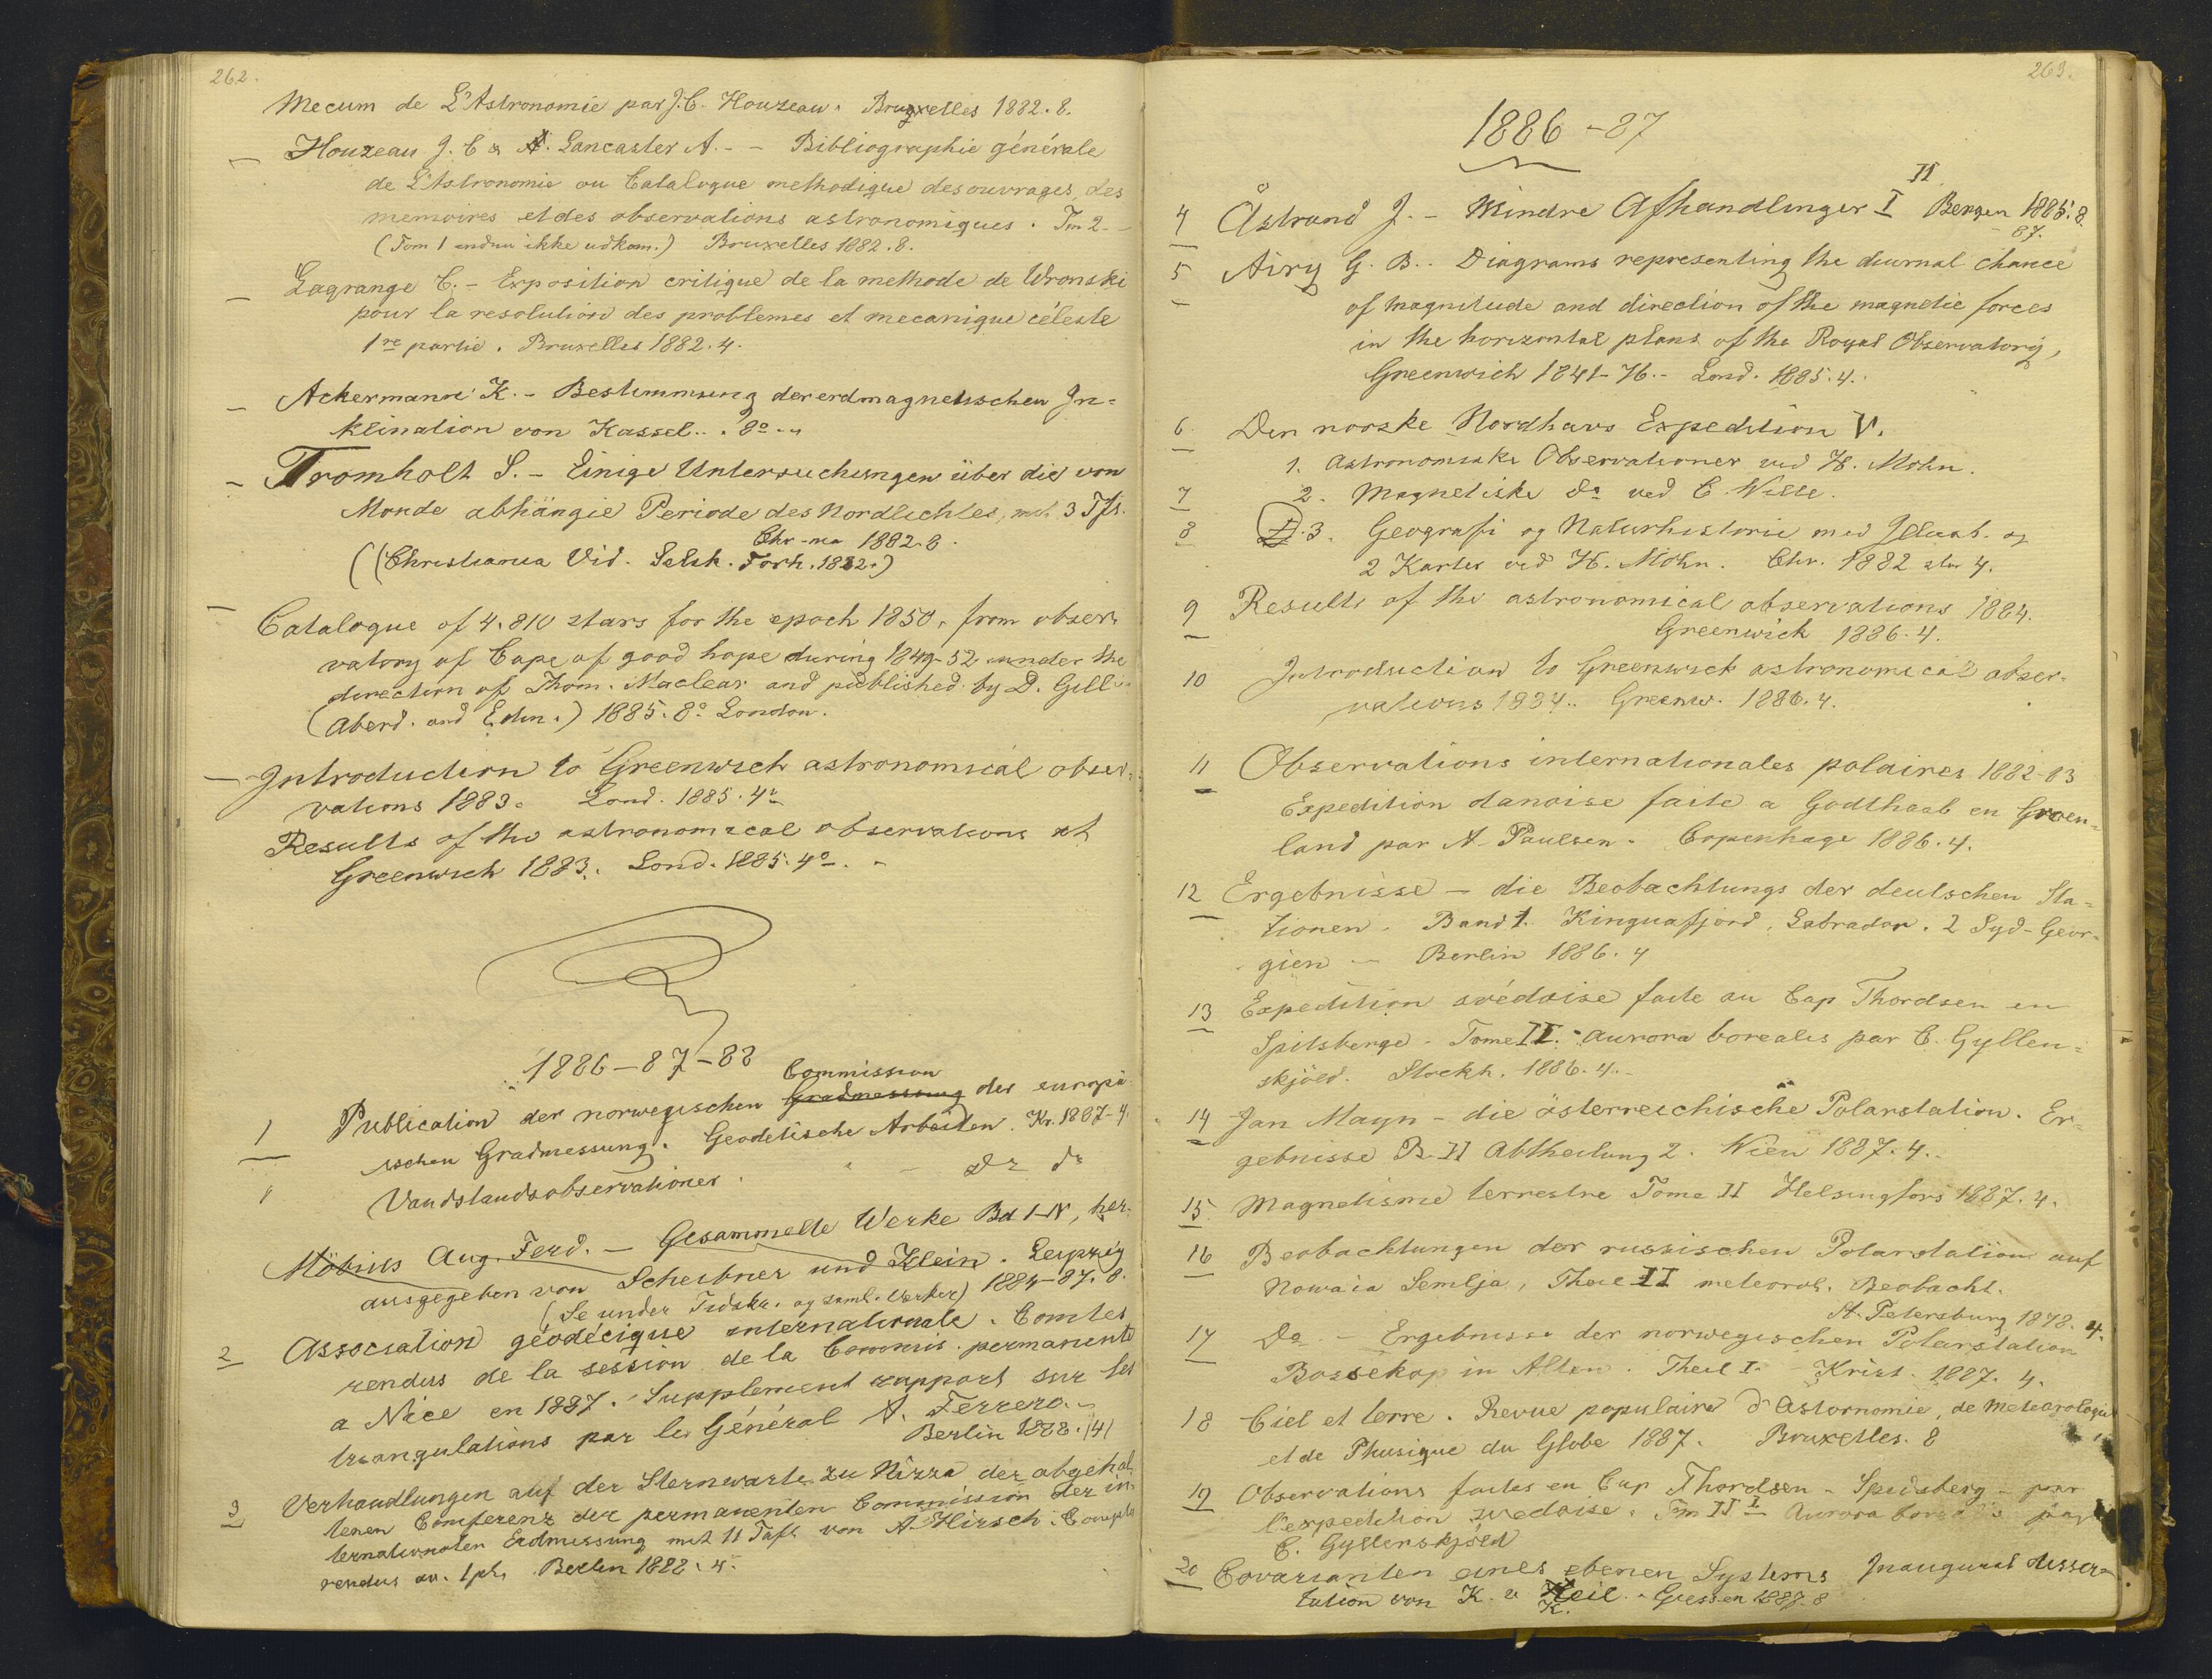 262.
Mecum de L'Astronomie par J. C. Houzeau. Bruxelles 1882. 8.
— Houzeau J. C & A. Lancaster A. - - Bibliographie générale
de L'Astronomie ou Catalogue methodique des ouvrages, des
memoires et des observations astronomiques. Tm 2 -
(Tom 1 endnu ikke udkom.) Bruxelles 1882. 8.
— Lagrange C. - Exposition critique de la methode de Wronski
pour la resolution des problemes et mecanique céleste
1re partie. Bruxelles 1882. 4.
— Ackermann K. - Bestimmung der erdmagnetischen In=
klination von Kassel. . 8o . "
— Tromholt S. - Einige Untersuchungen über die von
Monde abhängie Periode des Nordlichtes, mit 3 Tfs.
Chr-na 1882. 8.
((Christiania Vid. Selsk. Forh. 1882.)
— Catalogue of 4.810 stars for the epoch 1850, from obser
vatory of Cape of good hope during 1849-52 under the
direction of Thom. Maclear and published by D. Gill
(Aberd. and Edin.) 1885. 8o London.
— Introduction to Greenwich astronomical obser=
vations 1883. Lond. 1885. 4o
Results of the astronomical observations at
Greenwich 1883. Lond. 1885. 4o. -
1886-87-88
Commission
1 Publication der norwegischen Gradmessung der europä
ischen Gradmessung. Geodetische Arbeiten. Kr. 1887-4
" Vandstandsobservationer. " - Do do
Möbius Aug. Ferd. - Gesammelte Werke Bd I-IV, her-
ausgegeben von Scheibner und Klein. Leipzig
(Se under Tidskr. og saml. Værker) 1884-87. 8.
2 Association géodécique internationale. Comtes
rendus de la session de la Commis. permanente
a Nice en 1887. Supplement rapport sur les
triangulations par le Général A. Ferrero. -
Berlin 1888. (4)
3 Verhandlungen auf der Sternwarte zu Nizza der abgehal
tenen Conferenz der permanenten Commission der in-
ternationalen Erdmessung mit 11 Tafl. von A. Hirsch. Compte
rendus Berlin 1888. 4.
263.
1886-87
II
4 Åstrand J. - Mindre Afhandlinger I Bergen 1885. 8.
- 87.
5 Airy G. B. . Diagrams representing the diurnal chance
— of magnitude and direction of the magnetic forces
in the horizontal plans of the Royal Observatory,
Greenwich 1841-76. - Lond. 1885. 4. .
6. Den norske Nordhavs Expedition V.
1. Astronomiske Observationer ved H. Mohn.
7 2. Magnetiske do ved C. Wille.
8 3. Geografi og Naturhistorie med og
2 Karter ved H. Mohn. Chr. 1882 4.
9 Results of the astronomical observations 1884.
Greenwich 1886. 4.
10 Introduction to Greenwich astronomical obser=
vations 1884. . Greenw. 1886. 4.
11 Observations internationales polaires 1882-83
Expedition danoise faite a Godthaab en Groen=
land par A. Paulsen. Copenhage 1886. 4.
12 Ergebnisse - die Beobachtungs der deutschen Sta=
tionen. Band 1. Kinguafjord, Labrador. 2 Syd-Geor=
gien - Berlin 1886. 4
13 Expedition svédoise faite au Cap Thordsen en
Spitsberge - Tome II. - Aurora boreales par C. Gyllen=
skjöld. Stockh. 1886. 4. -
14 Jan Mayn - die österreichische Polarstation. Er=
gebnisse B. II Abtheilung 2. Wien 1887. 4. .
15. Magnetisme terrestre Tome II Helsingfors 1887. 4.
16 Beobachtungen der russischen Polarstation auf
Nowaia Semlja, Theil II meteorol. Beobacht.
St. Petersburg 1878. 4.
17 Do - Ergebnisse der norwegischen Polarstation
Bossekop in Alten. Theil I. - Krist. 1887. 4.
18 Ciel et terre. Revue populaire d'Astornomie, de Meteorologie
et de Phusique du Globe 1887. Bruxelles. 8
19 Observations faites en Cap Thordsen - Spidsberg - par
l'expedition svedoise. Tm II I Aurora par
C. Gyllenskjöld
20 Covarianten eines ebenen Systems Inaugural disser-
tation von K. v Keil. - Giessen 1887. 8
K.